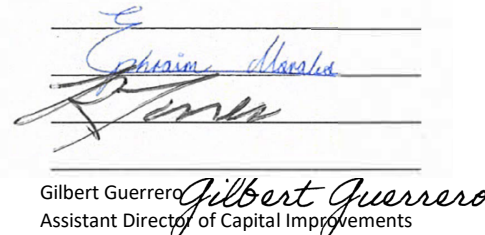 Ephraim Morales
Torres
Gilbert Guerrero Gilbert Guerrero
Assistant Director of Capital Improvements